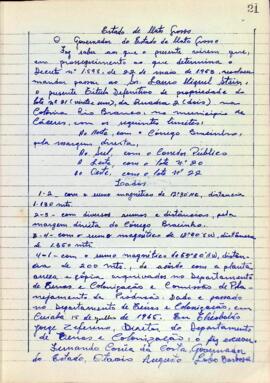 21
Estado de Mato Grosso
O Governador do Estado de Mato Grosso
Faz saber aos que o presente virem que,
em prosseguimento ao que determina o
Decreto nº 1.598, de 22 de maio de 1953, resolveu
mandar passar ao Sr. Lauro Miguel Stein,
o presente Título Definitivo de propriedade do
lote nº 21 (vinte e um), da Quadra 2 (dois) na
Colônia Rio Branco, no município de
Cáceres, com os seguintes limites:
Ao Norte, com o Córrego Bracinho,
pela margem direita,
Ao Sul, com o Corredor Público
A Leste, com o lote nº 20
Ao Oeste, com o lote nº 22
Lados
1-2 - com o rumo magnético de distância
1.130 mts.
2-3 - com diversos rumos e distâncias, pela
margem direita do Córrego Bracinho.
3-4 - com o rumo magnético de distância
de 1.250 mts.
4-1 - com o rumo magnético de distân-
cia de 200 mts, de acôrdo com a planta
aérea e cópia arquivadas no Departamento
de Terras e Colonização e Comissão de Pla-
nejamento da Produção. Dado e passado
no Departamento de Terras e Colonização, em
Cuiabá 15 de julho de 1965. Eu
Jorge Zeferino, Diretor do Departamento
de Terras e Colonização: o fiz
Fernando Corrêa da Costa, Governador
do Estado, Augusto Lobo Barbosa